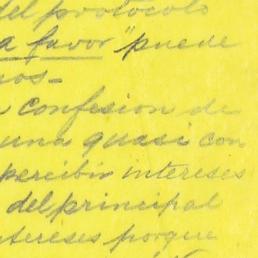 del protocolo
a favor" puede
nos-
a confesion de
una quasi con
percibir intereses
del principal
ntereses porque